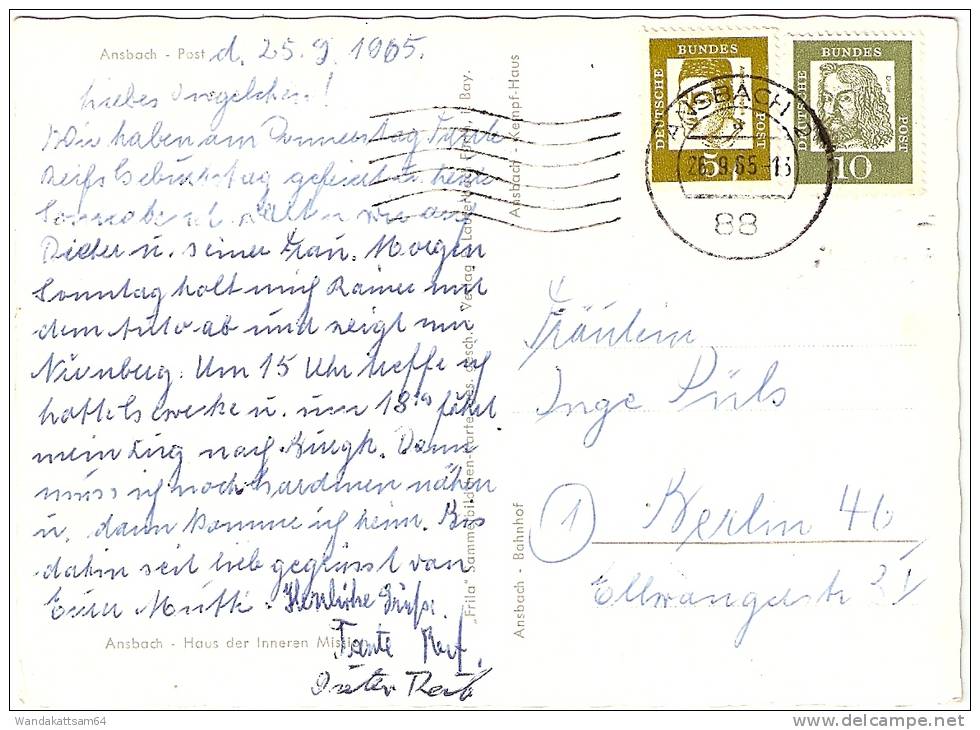 Ansbach - Post
d. 25.9.1965.
Liebes Ingelchen!
Wir haben am Donnerstag Tante
Reifs Geburtstag gefeiert u. heute
Sonnabend
Dieter u. seiner Frau. Morgen
Sonntag holt mich Rainer mit
dem Auto ab und zeigt mir
Nürnberg. Um 15 Uhr treffe ich
u. um 18 fährt
mein Zug nach Burgk. Dann
muss ich noch Gardinen nähen
u. dann komme ich heim. Bis
dahin seid lieb gegrüsst von
Eurer Mutti. Herzliche Grüße
Tante Reif.
Dieter Reif
Ansbach - Haus der Inneren Mission
"Frila" Sammelbildchen-Karte ges. gesch. Verlag
Bay.
Ansbach - Kempf-Haus
Ansbach - Bahnhof
DEUTSCHE
BUNDES
POST
5
DEUTSCHE
BUNDES
POST
Dürer
10
ANSBACH 2
26.9.65-13
88
Fräulein
Inge Püls
1
Berlin 46
Ellwangerstr
Wandakattsam64
delcampe.net